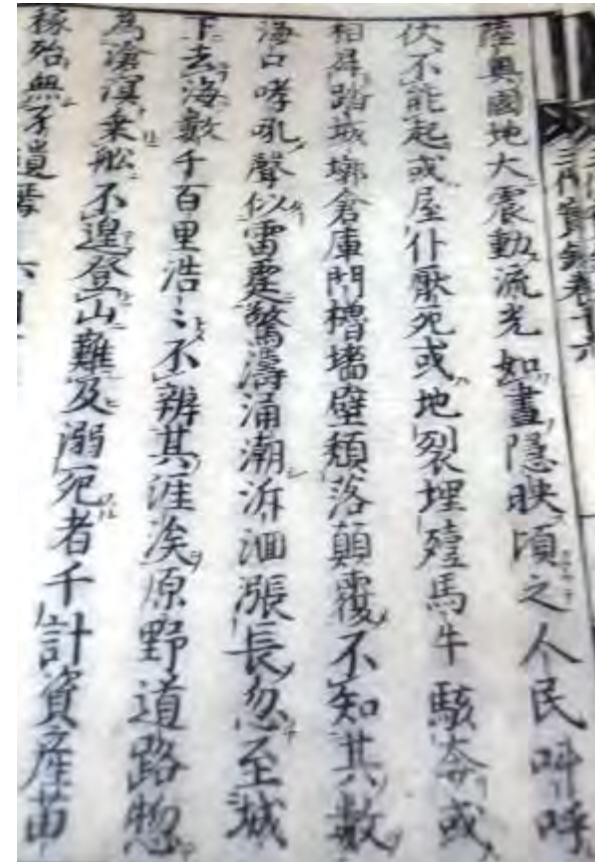 三代實錄卷十六
陸奧國地大震動流光如晝隱映頃之人民叫呼
伏不能起或屋仆壓死或地裂埋殪馬牛駭奔或
相昇踏城墎倉庫門櫓墻壁頹落顛覆不知其數
海口哮吼聲似雷霆驚濤涌潮泝洄漲長忽至城
下去海數千百里浩〻不辨其涯涘原野道路惣
為滄溟乗舩不遑登山難及溺死者千計資産苗
稼殆無孑遺焉